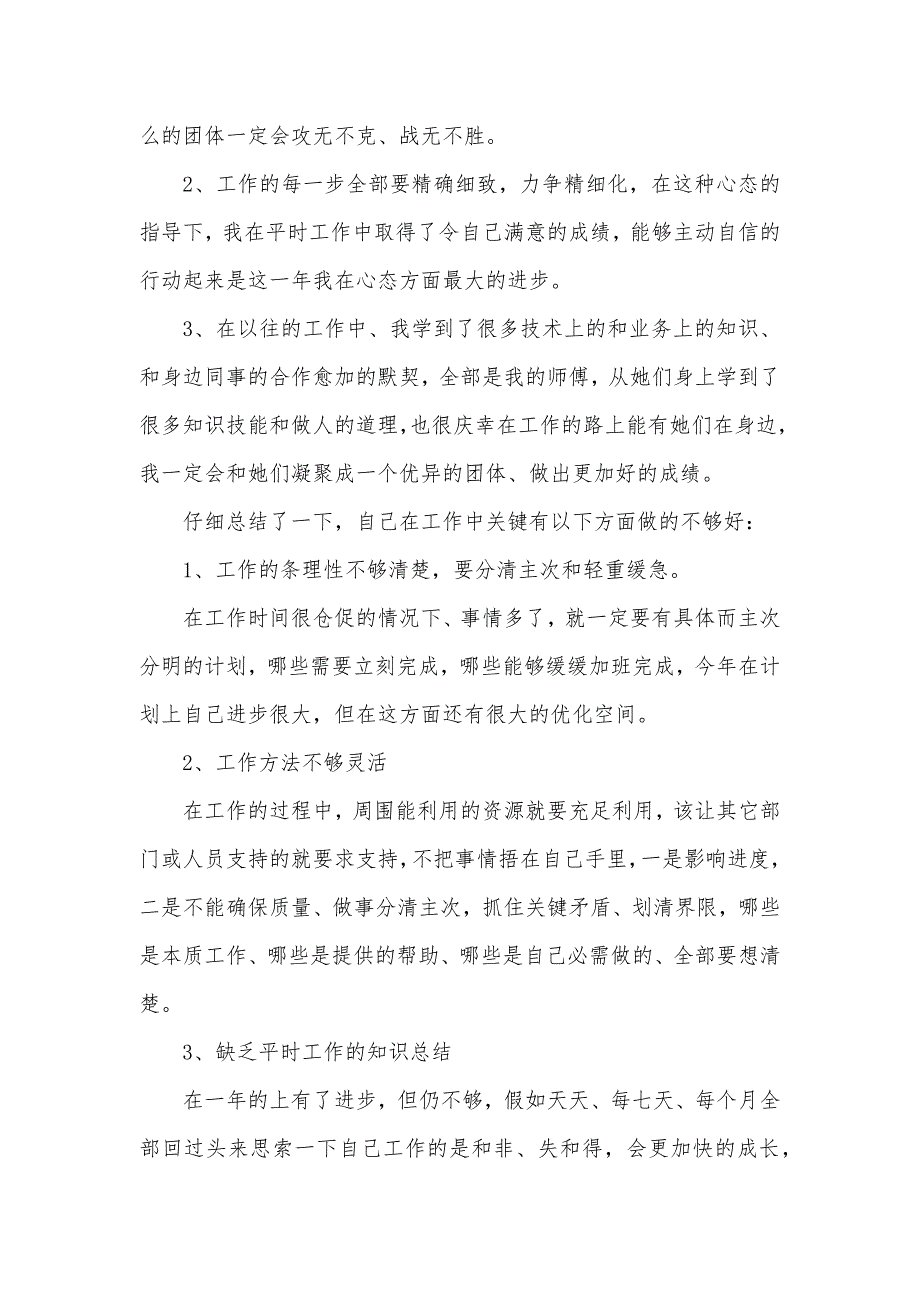 么的团体一定会攻无不克、战无不胜。
2、工作的每一步全部要精确细致，力争精细化，在这种心态的
指导下，我在平时工作中取得了令自己满意的成绩，能够主动自信的
行动起来是这一年我在心态方面最大的进步。
3、在以往的工作中、我学到了很多技术上的和业务上的知识、
和身边同事的合作愈加的默契，全部是我的师傅，从她们身上学到了
很多知识技能和做人的道理，也很庆幸在工作的路上能有她们在身边，
我一定会和她们凝聚成一个优异的团体、做出更加好的成绩。
仔细总结了一下，自己在工作中关键有以下方面做的不够好：
1、工作的条理性不够清楚，要分清主次和轻重缓急。
在工作时间很仓促的情况下、事情多了，就一定要有具体而主次
分明的计划，哪些需要立刻完成，哪些能够缓缓加班完成，今年在计
划上自己进步很大，但在这方面还有很大的优化空间。
2、工作方法不够灵活
在工作的过程中，周围能利用的资源就要充足利用，该让其它部
门或人员支持的就要求支持，不把事情捂在自己手里，一是影响进度，
二是不能确保质量、做事分清主次，抓住关键矛盾、划清界限，哪些
是本质工作、哪些是提供的帮助、哪些是自己必需做的、全部要想清
楚。
3、缺乏平时工作的知识总结
在一年的上有了进步，但仍不够，假如天天、每七天、每个月全
部回过头来思索一下自己工作的是和非、失和得，会更加快的成长，